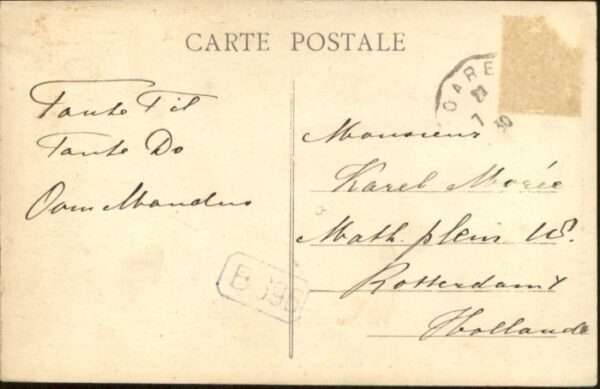 CARTE POSTALE
Tante Til
Tante Do
Oom Mandus
CARE
7
Monsieur
Karel Morée
Math. plein
Rotterdam
Hollande
B